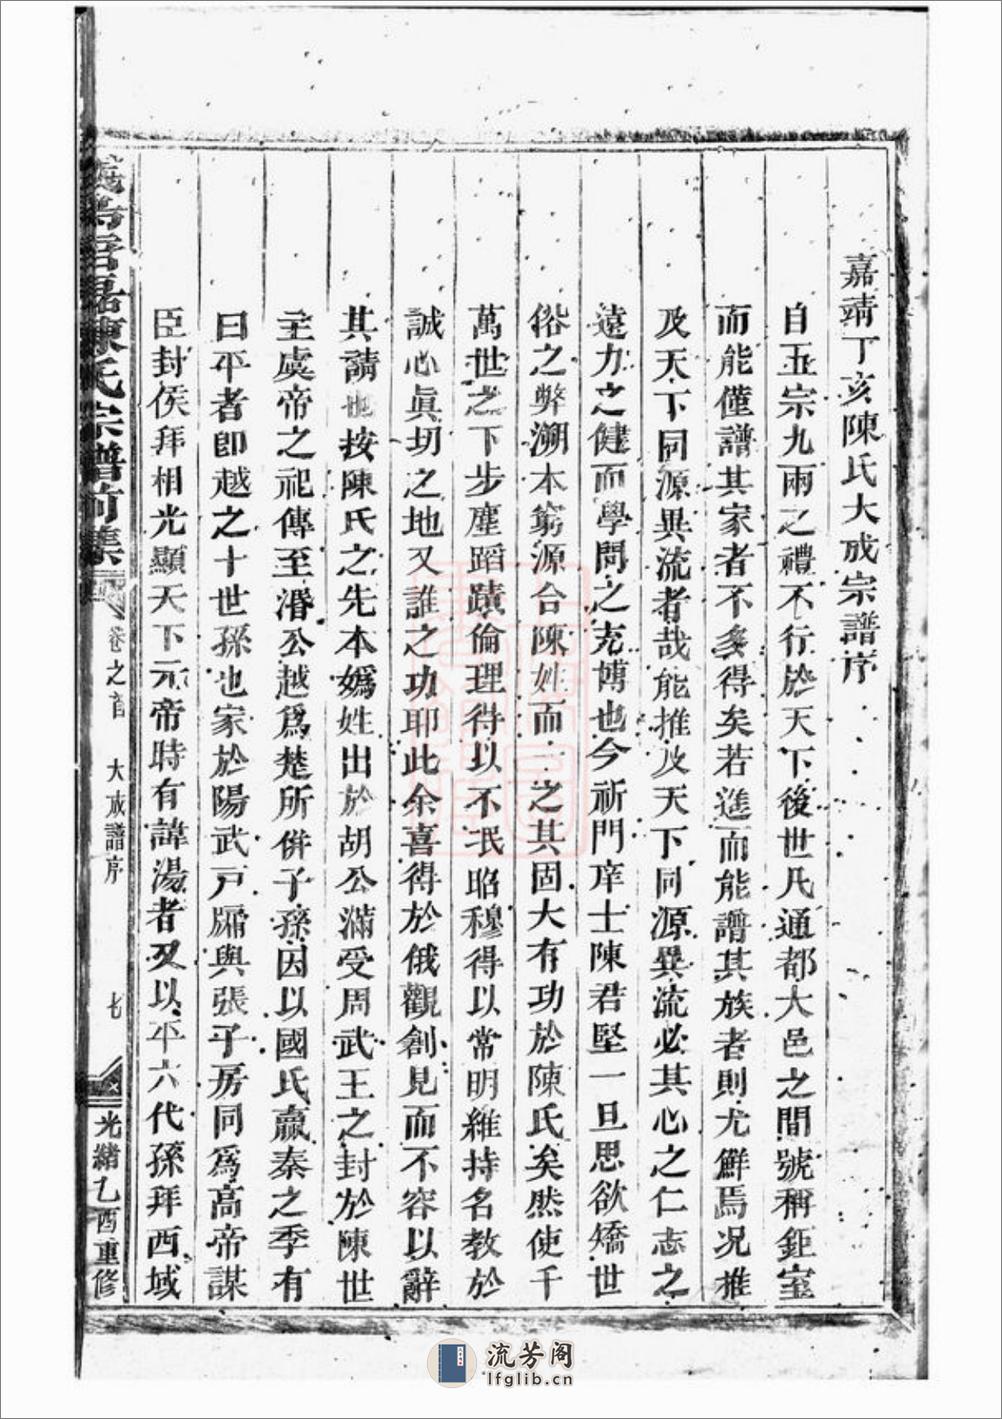 嘉靖丁亥陳氏大成宗譜序
自五宗九兩之禮不行於天下後世凡通都大邑之間號稱鉅室
而能僅譜其家者不多得矣若進而能譜其族者則尤鮮焉况推
及天下同源異流者哉能推及天下同源異流必其心之仁志之
遠力之健而學問之充博也今祈門庠士陳君堅一旦思欲矯世
俗之弊溯本窮源合陳姓而一之其固大有功於陳氏矣然使千
萬世之下步塵蹈蹟倫理得以不氓昭穆得以常明維持名教於
誠心眞切之地又誰之功耶此余喜得於俄觀創見而不容以辭
其請也按陳氏之先本嬀姓出於胡公滿受周武王之封於陳世
主虞帝之祀傳至湣公越爲楚所併子孫因以國氏嬴秦之季有
曰平者卽越之十世孫也家於陽武戸牖與張子房同爲高帝謀
臣封侯拜相光顯天下元帝時有諱湯者又以平六代孫拜西域
陳氏宗譜前集 卷之首 大成譜序 七 光緒乙酉重修
流芳阁
lfglib.cn